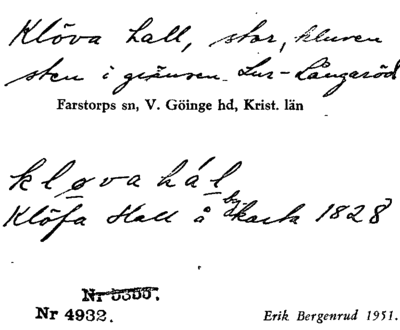 Klöva hall, stor, kluven
sten i gränsen Lur-Långaröd
Farstorps sn, V. Göinge hd, Krist. län
kløva hál
Klöfa Hall å karta 1828
Nr 5355.
Nr 4932.
Erik Bergenrud 1951.